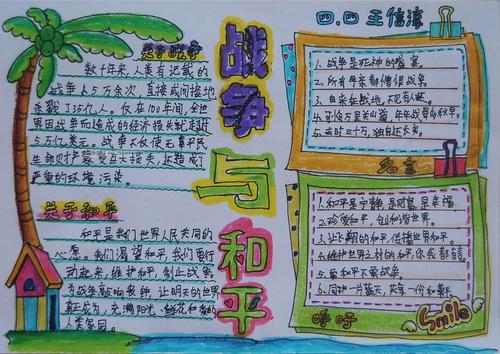 战争与和平
四.四 王信淳
关于战争
数千年来,人类有记载的
战争人5万余次,直接或间接地
杀戮了35亿人。仅在100年间,全世
界因战争而造成的经济损失就超过
5万亿美元。战争不仅使无辜平民
生命财产蒙受巨大损失,还造成了
严重的环境污染。
关于和平
和平是我们世界人民共同的
心愿。我们渴望和平,我们要行
动起来,维护和平,制止战争,
为战争敲响丧钟,让明天的世界
真正成为,充满阳光、鲜花和爱的
人类家园。
1.战争是死神的盛宴。
2.所有母亲都憎恨战争。
3.由来征战地,不见有人还。
5.去时三十万,独自还长安。
名言
1.和平是宁静,是财富,是幸福
2.珍爱和平,创和谐世界。
3.让飞翔的和平,传播世界和平。
4.维护世界上村的和平,你我都有责。
5.要和平不要战争。
6.同护一片蓝天,共享一份和平
呼吁
Smile